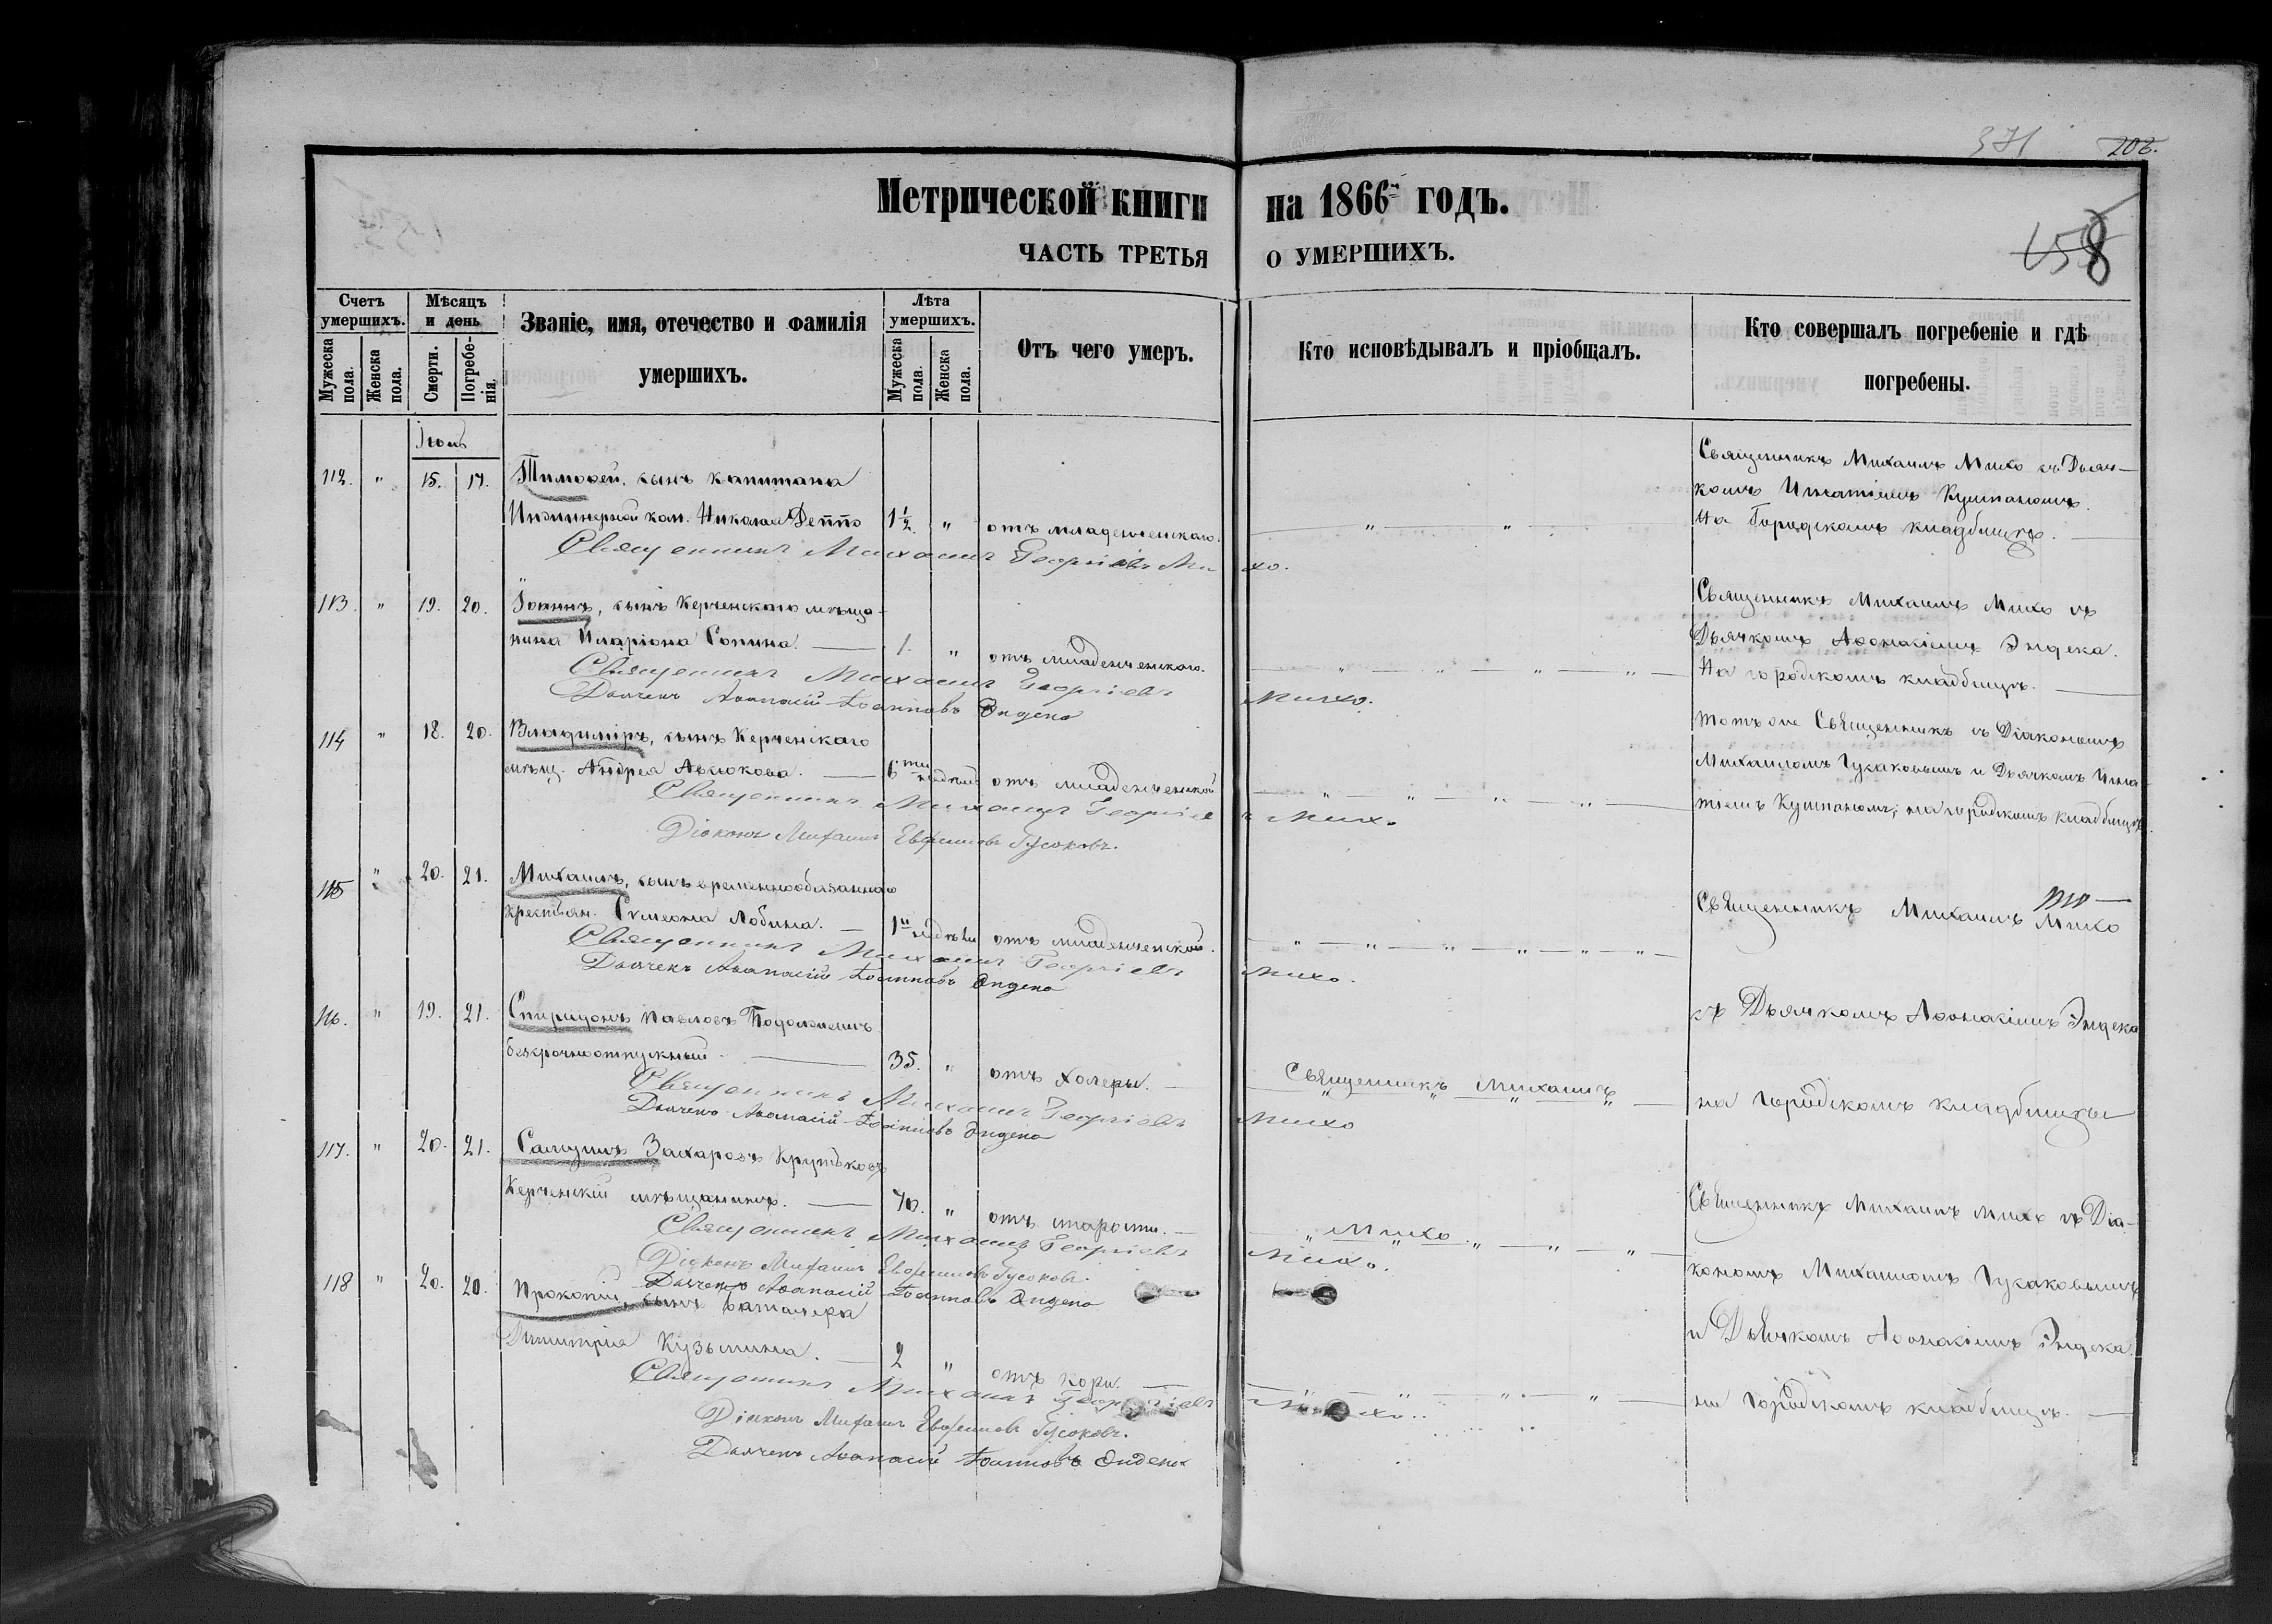 371 202.
Метрической книги на 1866й годъ.
158
ЧАСТЬ ТРЕТЬЯ О УМЕРШИХЪ.
Счетъ умершихъ.
Мужеска пола.
Женска пола.
Мѣсяцъ и день
Смерти.
Погребенія.
Званіе, имя, отечество и фамилія
умершихъ.
Лѣта умершихъ.
Мужеска пола.
Женска пола.
Отъ чего умеръ.
Кто исповѣдывалъ и пріобщалъ.
Кто совершалъ погребеніе и гдѣ
погребены.
112. " 15. 17. Тимоѳей, сынъ капитана
Инжинерной ком. Николая 1½ " отъ младенческаго. " "
Священникъ Михаилъ Михо съ Дьяч-
комъ Игнатіемъ Кушпаномъ.
на Городскомъ кладбищѣ.
Священникъ Михаилъ Георгіевъ Михо.
113. " 19. 20. Іоаннъ, сынъ Керченскаго мѣща-
нина Иларіона Сопина. 1. " отъ младенческаго. " " " "
Священникъ Михаилъ Михо съ
Дьячкомъ Аѳонасіемъ Эндека.
На городскомъ кладбищѣ.
Священникъ Михаилъ Георгіевъ Михо.
Дьячекъ Аѳанасій Іоанновъ Эндека
114 " 18. 20. Владиміръ, сынъ Керченскаго
мѣщ. Андрея 6ти недѣль отъ младенческой " " " "
тотъ же Священникъ съ Діакономъ
Михаиломъ Гусаковымъ и Дьячкомъ Игна
тіемъ Кушпаномъ; на городскомъ кладбищѣ.
Священникъ Михаилъ Георгіевъ Михо
Діаконъ Михаилъ Евфимовъ Гусаковъ.
115 " 20. 21. Михаилъ, сынъ временнообязаннаго
крестьян. Симеона Лобина. 1й недѣли отъ младенческой. " " " " " "
Священникъ Михаилъ Михо
Священникъ Михаилъ Георгіевъ Михо.
Дьячекъ Аѳанасій Іоанновъ Эндека
116. " 19. 21. Спиридонъ Павловъ
безсрочноотпускный. 35. " отъ холеры. Священникъ Михаилъ
съ Дьячкомъ Аѳонасіемъ Эндека
на городскомъ кладбищѣ
Священникъ Михаилъ Георгіевъ Михо
Дьячекъ Аѳанасій Іоанновъ Эндека
117. " 20. 21. Самуилъ Захаровъ Крутьковъ
Керченскій мѣщанинъ. 70. " отъ старости. Михо. " "
Священникъ Михаилъ Михо съ Діа-
кономъ Михаиломъ Гусаковымъ
Священникъ Михаилъ Георгіевъ Михо.
Діаконъ Михаилъ Евфимовъ Гусаковъ.
Дьячекъ Аѳанасій Іоанновъ Эндека
118 " 20. 20. Прокопій, сынъ баталера
Димитрія Кузьмина. 2 " отъ кори. " " " "
и Дьячкомъ Аѳонасіемъ Эндека.
на городскомъ кладбищѣ.
Священникъ Михаилъ Георгіевъ Михо.
Діаконъ Михаилъ Евфимовъ Гусаковъ.
Дьячекъ Аѳанасій Іоанновъ Эндека